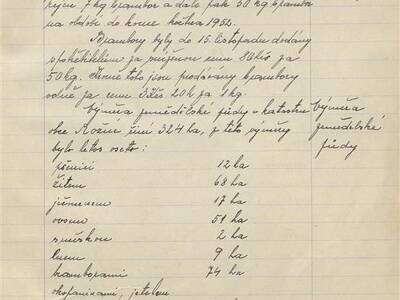 příjm 7 kg brambor a dále pak 50 kg brambor
na období do konce května 1952.
Brambory byly do 15. listopadu dodány
spotřebitelům za sníženou cenu 80 Kčs za
50 kg. Mimo toto jsou prodávány brambory
volně za cenu 3 Kčs. 20 h za 1 kg.
Výměra zemědělské půdy v katastru
obce Kožlí činí 324 ha, z této výměry
bylo letos oseto:
Výměra
zemědělské
půdy
pšenicí 12 ha
žitem 68 ha
ječmenem 17 ha
ovsem 51 ha
směskou 2 ha
lnem 9 ha
bramborami 74 ha
okopaninami, jetelem